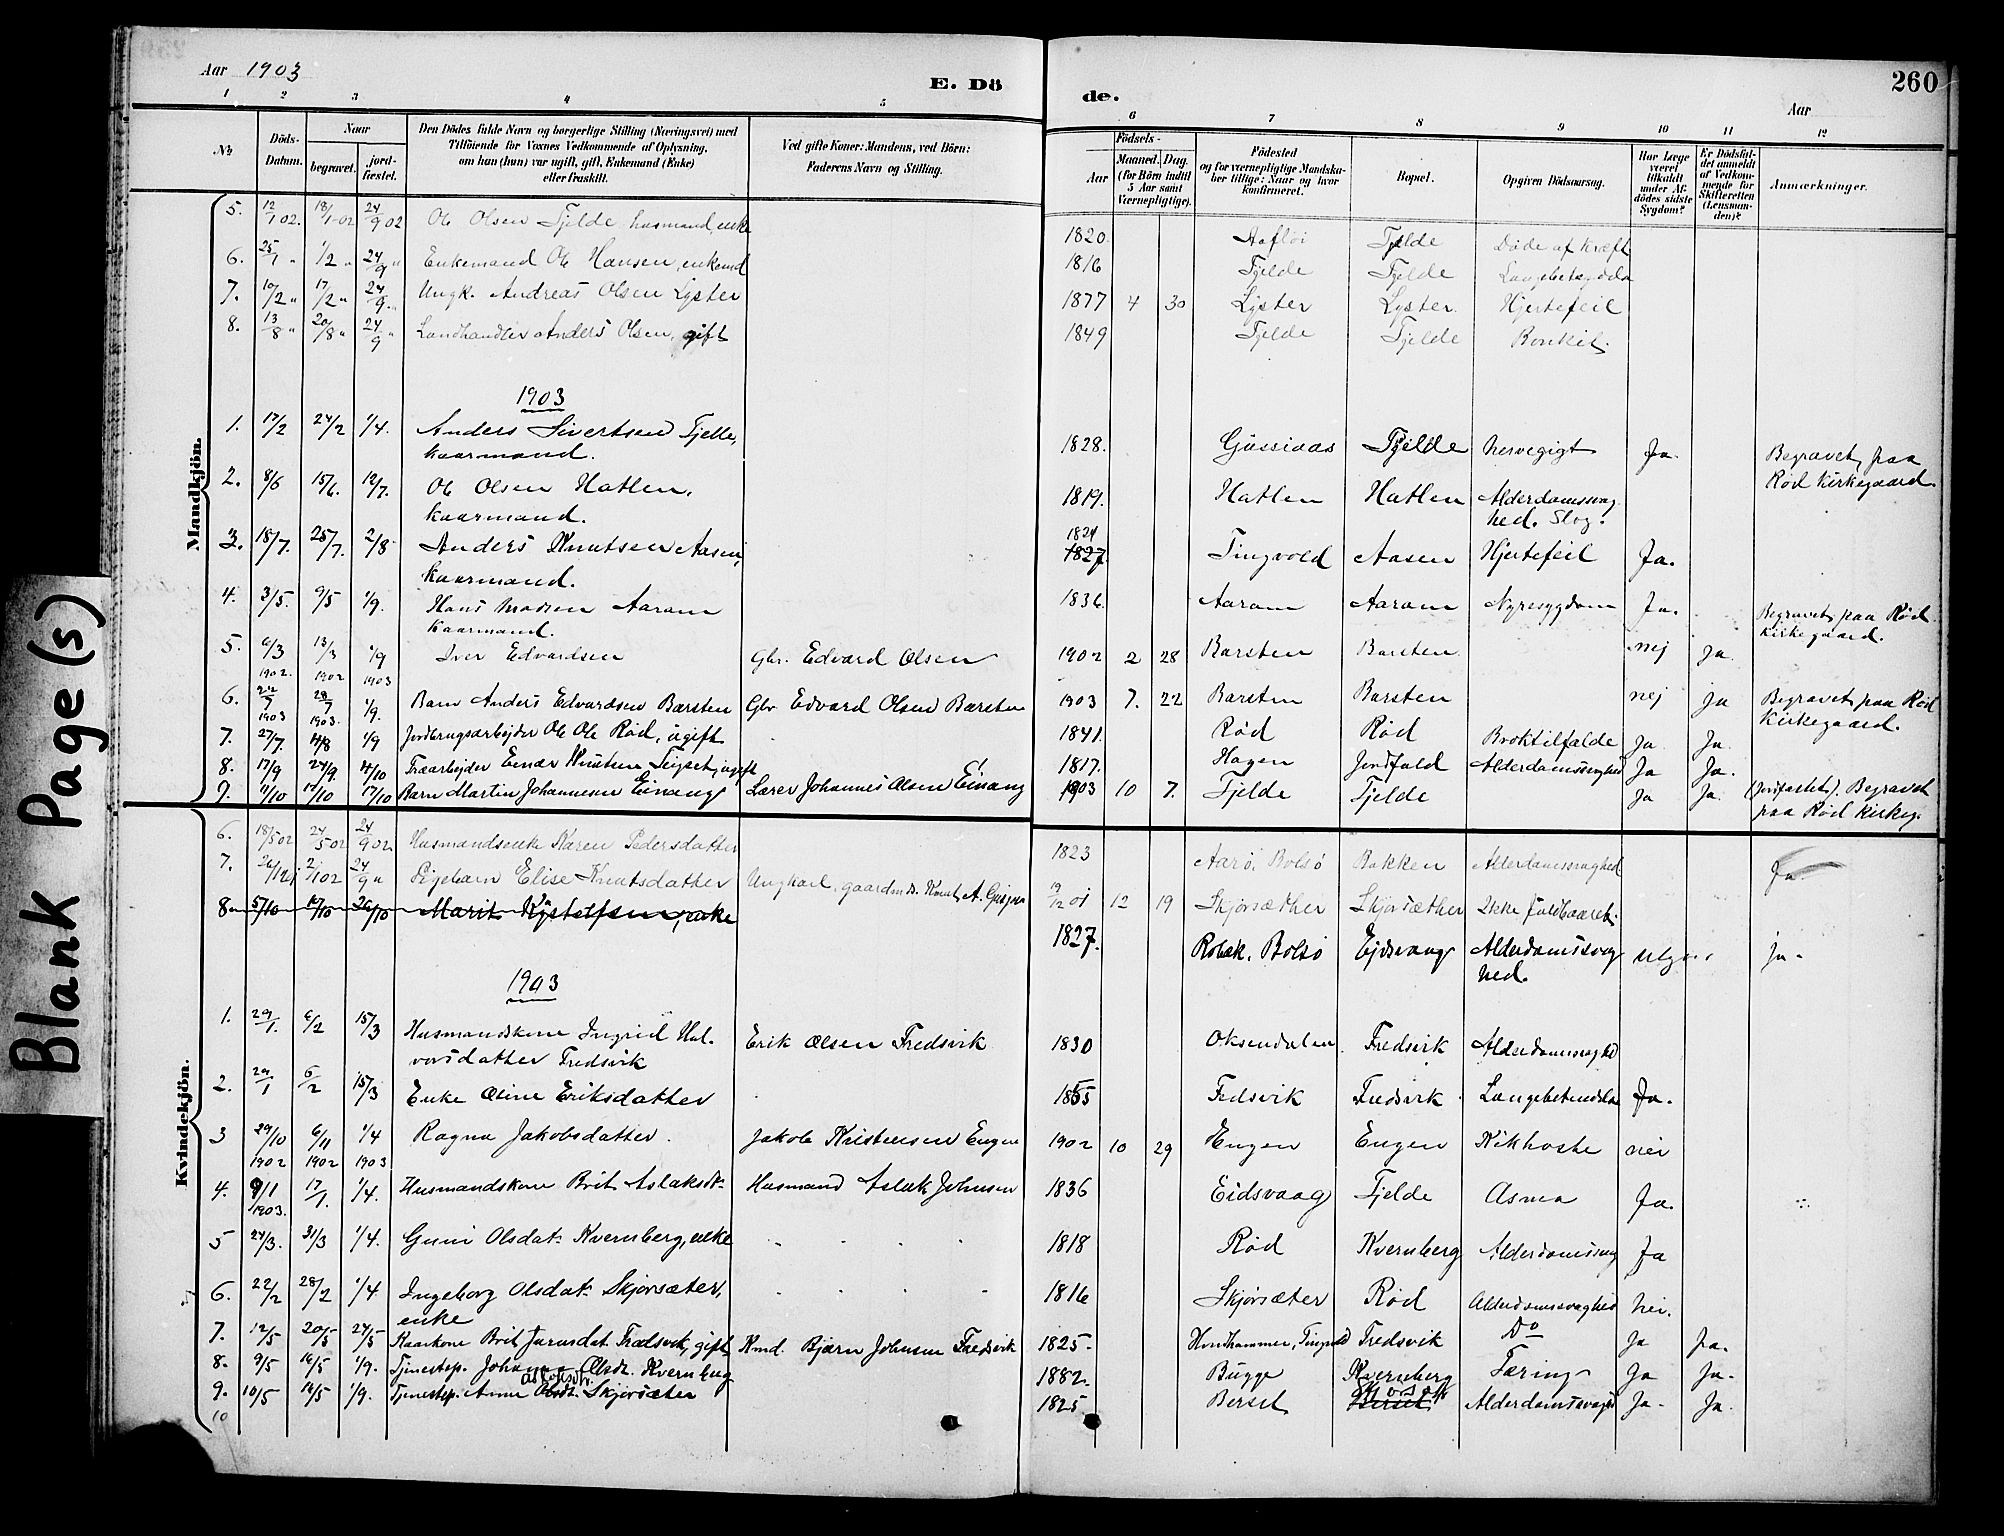 Aar 1903
E. Dö
de.
Aar
260
1 2 3 4 5 6 7 8 9 10 11 12
No.
Döds-Datum.
Naar
begravet.
jord-fæstet.
Den Dödes fulde Navn og borgerlige Stilling (Næringsvei) med
Tilföiende for Voxnes Vedkommende af Oplysning,
om han (hun) var ugift, gift, Enkemand (Enke)
eller fraskilt.
Ved gifte Koner: Mandens, ved Börn:
Faderens Navn og Stilling.
Födsels-
Aar
Maaned. Dag.
(for Börn indtil
5 Aar samt
Værnepligtige).
Födested
og for værnepligtige Mandska-
ber tillige: Naar og hvor
konfirmeret.
Bopæl.
Opgiven Dödsaarsag.
Har Læge
været
tilkaldt
under Af-
dödes sidste
Sygdom?
Er Dödsfal-
det anmeldt
af Vedkom-
mende for
Skifteretten
(Lensman-
den)?
Anmærkninger.
Mandkjön.
5. 12/1 02. 18/1 02 24/9 02 Ole Olsen Tjelde husmand, enke 1820. Tjelde Döde af Kræft
6. 25/1 " 1/2 " 24/9 " Enkemand Ole Hansen, enkemd 1816 Tjelde Tjelde
7. 10/2 " 17/2 " 24/9 " Ungk. Andreas Olsen Lyster 1877 4 30 Lyster Lyster Hjertefeil
8. 13/8 " 20/8 " 24/9 " Landhandler Anders Olsen, gift 1849 Tjelde Tjelde Bronkit.
1903
1. 17/2 24/2 1/4. Anders Sivertsen Tjelle, 1828. Gussiaas Tjelde Nervegigt Ja. Begravet paa
kaarmand. Rød Kirkegaard.
2. 8/6 15/6. 12/7. Ole Olsen Hatlen, 1819. Hatlen Hatlen Alderdomssvag
kaarmand. hed. Slag.
3. 18/7. 25/7. 2/8 Anders Knutsen Aasen, 1824 1827. Tingvold Aasen Hjertefeil Ja.
kaarmand.
4. 3/5. 9/5 1/9. Hans Madsen Aaram 1836. Aaram Aaram Nyresygdom Ja. Begravet paa Rød
kaarmand. kirkegaard.
5. 6/3 1902. 13/3 1902 1/9 1903 Iver Edvardsen Gbr. Edvard Olsen 1902 2 28 Barsten Barsten nej Ja.
6. 22/7 1903 28/7 1903. 1/9. Barn Anders Edvardsen Barsten Gbr Edvard Olsen Barsten 1903 7. 22 Barsten Barsten nej Ja Begravet paa Rød
Kirkegaard.
7. 27/7. 4/8 1/9 Jordbrugsarbejder Ole Ols. Rød, ugift 1841. Rød Rød Broktilfælde Ja Ja.
8. 17/9 24/9. 4/10 Træarbejder Einar Knutsen ugift 1817. Hagen Jordfald Alderdomssvaghed Ja Ja.
9. 7/10 17/10 17/10 Barn Martin Johannesen Einang Lærer Johannes Olsen Einang 1903 10 7. Tjelde Tjelde Ja Ja. (Jordfæstet). Begravet
paa Rød Kirkeg.
Kvindekjön.
6. 18/5 02 24/5 02 24/9 02 Husmandsenke Karen Pedersdatter 1823 Aarø, Bolsø Bakken Alderdomssvaghed Ja.
7. 2/1 02 24/9 " Pigebarn Elise Knutsdatter Ungkarl, gaardm.s. Knut A. 19/12 01 12 19 Skjørsæther Skjørsæther Ikke fuldbaaret.
8. 5/10 12/10 26/10 Marit enke 1827. Bolsø Ejdsvaag Alderdomssvag
hed. Ja.
1903
1. 29/1. 6/2 15/3 Husmandskone Ingrid Hal- Erik Olsen Fredsvik 1830 Oksendalen Fredsvik Alderdomssvaghed
vorsdatter Fredsvik
2. 29/1 5/2 15/3 Enke Oline Eriksdatter 1855 Fredsvik Fredsvik Ja.
3 29/10 1902 6/11 1902 1/4 1903 Ragna Jakobsdatter. Jakob Kristensen Engen 1902 10 29 Engen Engen Kikhoste nei
4. 9/1 1903. 17/1. 1/4. Husmandskone Brit Aslaksdt. Husmand Aslak Johnsen 1836 Eidsvaag Tjelde Asma Ja.
5 24/3. 31/3 1/4. Guni Olsdat. Kvernberg, enke 1818 Rød Kvernberg Alderdomssvag Ja
6. 22/2 28/2 1/4 Ingeborg Olsdat. Skjørsæter, 1816 Skjørsæter Rød Alderdomssvaghed nei.
enke
7. 12/5 20/5 24/5 Kaarkone Brit Fredsvik, gift Kmd. Bjørn Johnsen Fredsvik 1825. Tingvold Fredsvik Do Ja Ja.
8. 9/5 16/5 1/9. Tjenestep. Johanna Olsdt. Kvernberg 1882. Bugge Kvernberg Tæring Ja Ja.
9. 10/5 16/5 1/9. Tjenestep. Anne Olsdt. Skjørsæter 1825 Berset Berset Alderdomssvaghed Ja. Ja.
10
Blank Page(s)